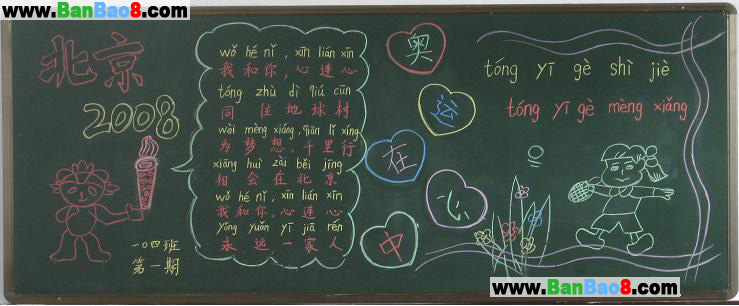 www.BanBao8.com
北京
2008
一〇四班
第一期
wǒ hé nǐ, xīn lián xīn
我和你,心连心
tóng zhù dì qiú cūn
同住地球村
wèi mèng xiǎng, qiān lǐ xíng
为梦想,千里行
xiāng huì zài běi jīng
相会在北京
wǒ hé nǐ, xīn lián xīn
我和你,心连心
yǒng yuǎn yī jiā rén
永远一家人
奥
运
在
心
中
tóng yī gè shì jiè
tóng yī gè mèng xiǎng
www.BanBao8.com
www.BanBao8.com